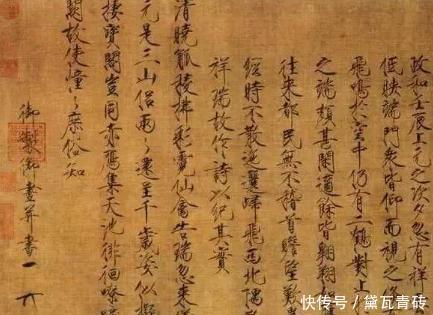 政和壬辰上元之次夕忽有祥
低映端門眾皆仰而視之倏
飛鳴於空中仍有二鶴對止
之端頗甚閑適餘皆翱翔
往來都民無不稽首瞻望歎
經時不散迤邐歸飛西北隅
祥瑞故作詩以紀其實
清曉觚稜拂彩霓仙禽告瑞忽來儀
元是三山侶兩兩還呈千歲姿似擬
棲寶閣豈同赤雁集天池徘徊嘹唳
闕故使憧憧庶俗知
御製御畫并書
快传号 / 黛瓦青砖